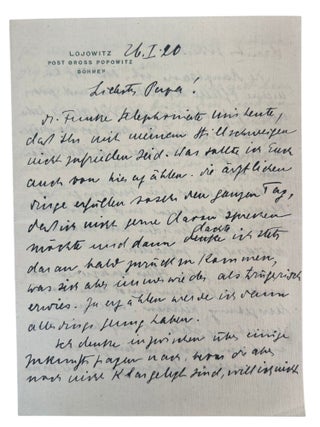 LOJOWITZ
POST GROSS POPOWITZ
BÖHMEN
26.I.20
Liebster Papa!
Dr. Funke telephonierte mir heute,
daß Ihr mit meinem Stillschweigen
nicht zufrieden seid. Was sollte ich Euch
auch von hier erzählen. Die ärztlichen
Dinge erfüllen sosehr den ganzen Tag,
daß ich nicht gerne davon sprechen
möchte und dann dachte ich stets
daran, bald zurück zu kommen,
was sich aber immer wieder als trügerisch
erwies. Zu erzählen werde ich dann
allerdings genug haben.
Ich denke inzwischen über einige
Zukunftsfragen nach, die aber
noch nicht klargelegt sind, will ich nicht